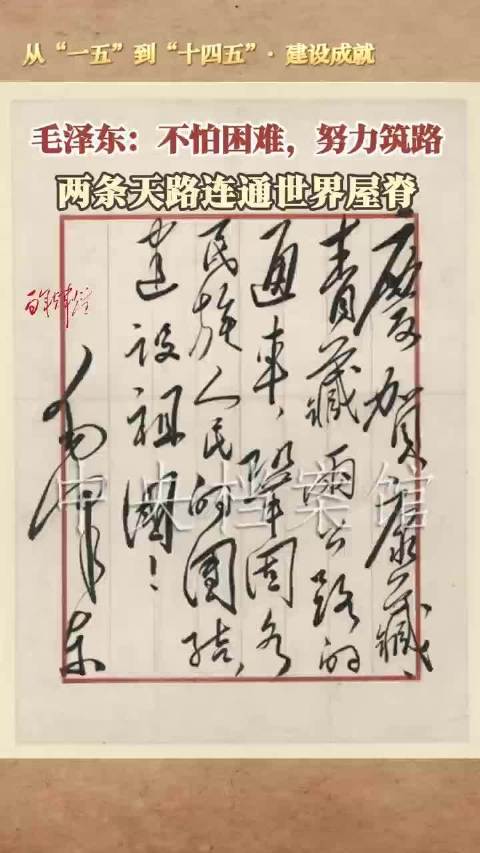 从“一五”到“十四五”·建设成就
毛泽东：不怕困难，努力筑路
两条天路连通世界屋脊
慶賀康藏、
青藏兩公路的
通車，鞏固各
民族人民的團结，
建设祖國！
毛泽东
中央档案馆